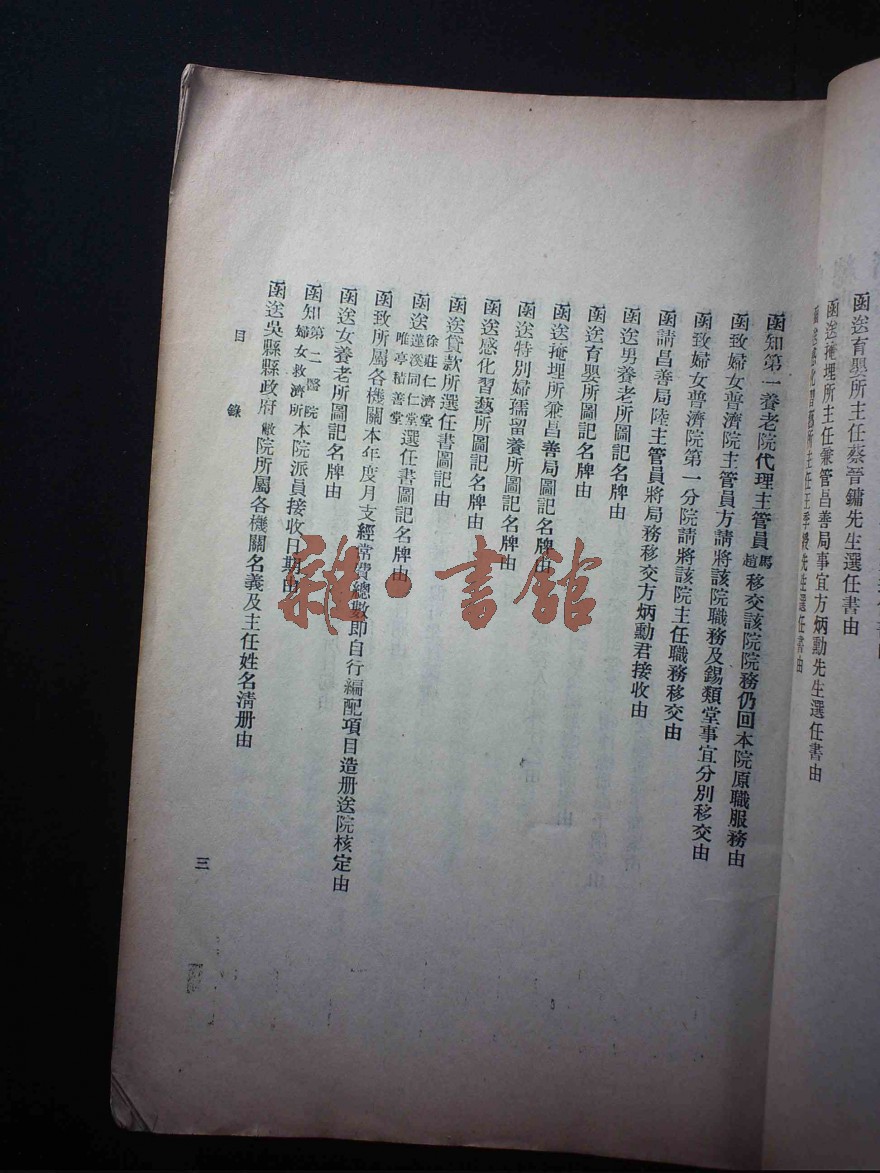 函送育嬰所主任蔡晉鏞先生選任書由
函送掩埋所主任兼管昌善局事宜方炳勳先生選任書由
函送感化習藝所主任王季授先生選任書由
函知第一養老院代理主管員馬趙移交該院院務仍回本院原職服務由
函致婦女普濟院主管員方請將該院職務及錫類堂事宜分別移交由
函致婦女普濟院第一分院請將該院主任職務移交由
函請昌善局陸主管員將局務移交方炳勳君接收由
函送男養老所圖記名牌由
函送育嬰所圖記名牌由
函送掩埋所兼昌善局圖記名牌由
函送特別婦孺留養所圖記名牌由
函送感化習藝所圖記名牌由
函送貸款所選任書圖記由
函送徐莊仁濟堂蓮溪同仁堂唯亭積善堂選任書圖記名牌由
函致所屬各機關本年度月支經常費總數即自行編配項目造册送院核定由
函送女養老所圖記名牌由
函知第二醫院婦女救濟所本院派員接收日期由
函送吳縣縣政府敝院所屬各機關名義及主任姓名清册由
目錄
三
雜·書館